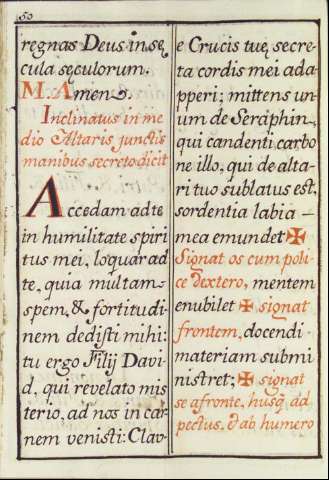 50
regnas Deus in sę
cula sęculorum.
M. Amen.
Inclinatus in me
dio Altaris junctis
manibus secreto dicit
Accedam ad te
in humilitate spiri
tus mei, loquar ad
te, quia multam
spem, & fortitudi
nem dedisti mihi:
tu ergo Filij Davi
d, qui revelato mis
terio, ad nos in car
nem venisti: Clav-
e Crucis tuę, secre
ta cordis mei ada
pperi; mittens un
um de Seraphin,
qui candenti carbo
ne illo, qui de alta
ri tuo sublatus est,
sordentia labia –
mea emundet ✠
Signat os cum poli-
ce dextero, mentem
enubilet ✠ signat
frontem, docendi
materiam submi
nistret; ✠ signat
se afronte, husq, ad
pectus, & ab humero